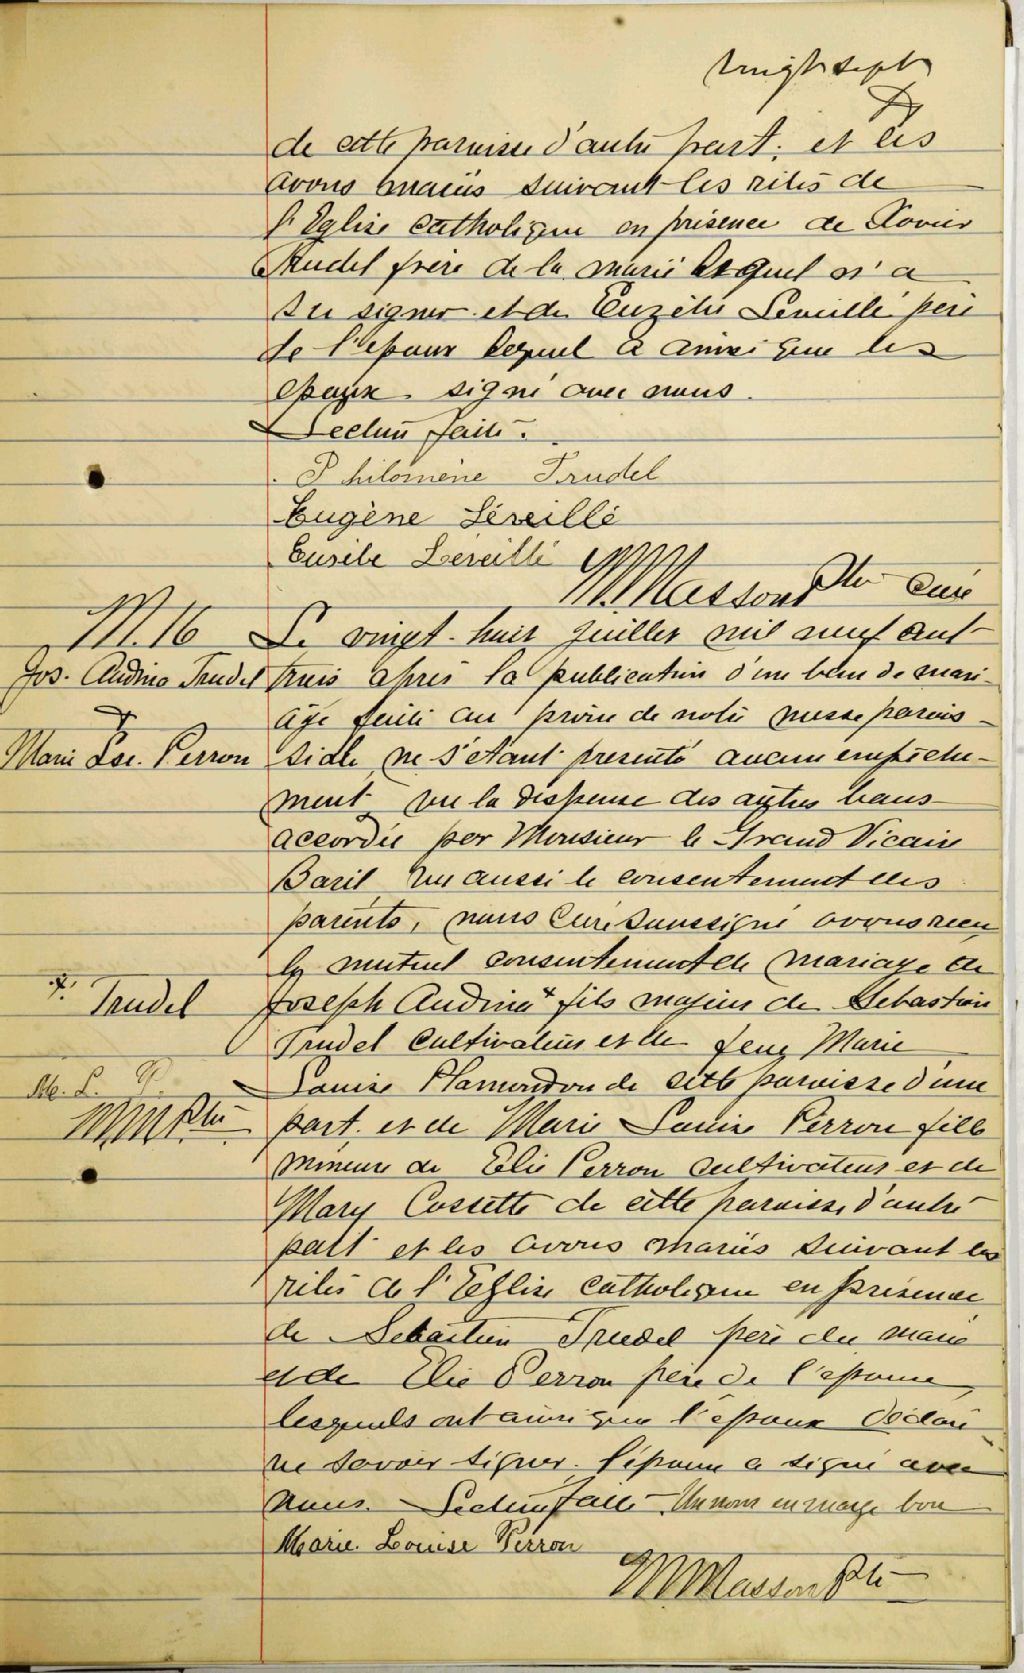 vingt sept
de cette paroisse d'autre part, et les
avons mariés suivant les rites de
l'Eglise Catholique en présence de Xavier
Trudel frère de la marié lequel n'a
su signer et de Euzèbe Léveillé père
de l'époux lequel a ainsi que les
epoux signé avec nous.
Lecture faite.
Philomène Trudel
Eugène Léveillé
Eusèbe Léveillé
M. Masson Ptre Curé
M. 16
Jos. Audina Trudel
&
Marie Lse. Perron
Le vingt-huit juillet mil neuf cent
trois après la publication d'un ban de mari-
age faite au prône de notre messe parois-
siale, ne s'étant présenté aucun empêche-
ment vu la dispense des autres bans
accordée par Monsieur le Grand Vicaire
Baril vu aussi le consentement des
parents, nous Curé soussigné avons reçu
le mutuel consentement de mariage de
Joseph Audina x fils majeur de Sebastien
x. Trudel
Trudel Cultivateur et de feue Marie
Louise Hamondon de cette paroisse d'une
M. L. P.
MM Ptre
part, et de Marie Louise Perron fille
mineure de Elie Perron cultivateur et de
Mary Cossette de cette paroisse d'autre
part et les avons mariés suivant les
rites de l'Eglise Catholique en présence
de Sebastien Trudel père du marié
et de Elie Perron père de l'épouse,
lesquels ont ainsi que l'époux déclaré
ne savoir signer. l'épouse a signé avec
nous. Lecture faite. Un nom en marge bon
Marie Louise Perron
M Masson Ptre